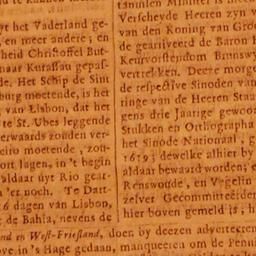 yt het Vaderland ge-
, en meer andere; en
heid Christoffel But-
naar Kurassau gepas-
de. Het Schip de Sint
burg moetende, is het
van Lisbon, dat het
te St. Ubes leggende
erwaards zouden ver-
eiro moetende, zon-
oort lagen, in't begin
aldaar uyt Rio gear-
er noch. Te Dart-
26 dagen van Lisbon,
t de Bahia, nevens de
Minister is
Verscheyde Heeren zyn
van den Koning van
de gearriveerd de Baron
Keurvorstendom Brunswy
vertrekken. Deeze morge
de respective Sinoden van
ringe van de Heeren Staa
gens drie Jaarige gewoo
Stukken en Orthographa
het Sinode Nationaal, g
1619; dewelke alhier by
aldaar bewaard worden; e
Renswoude, en Vegelin
zelver Gecommitteerden
hier boven gemeld is, h
and en West-Friesland, doen by deezen adverteeren
ove in 's Hage gedaan, manqueeren om de Pennin